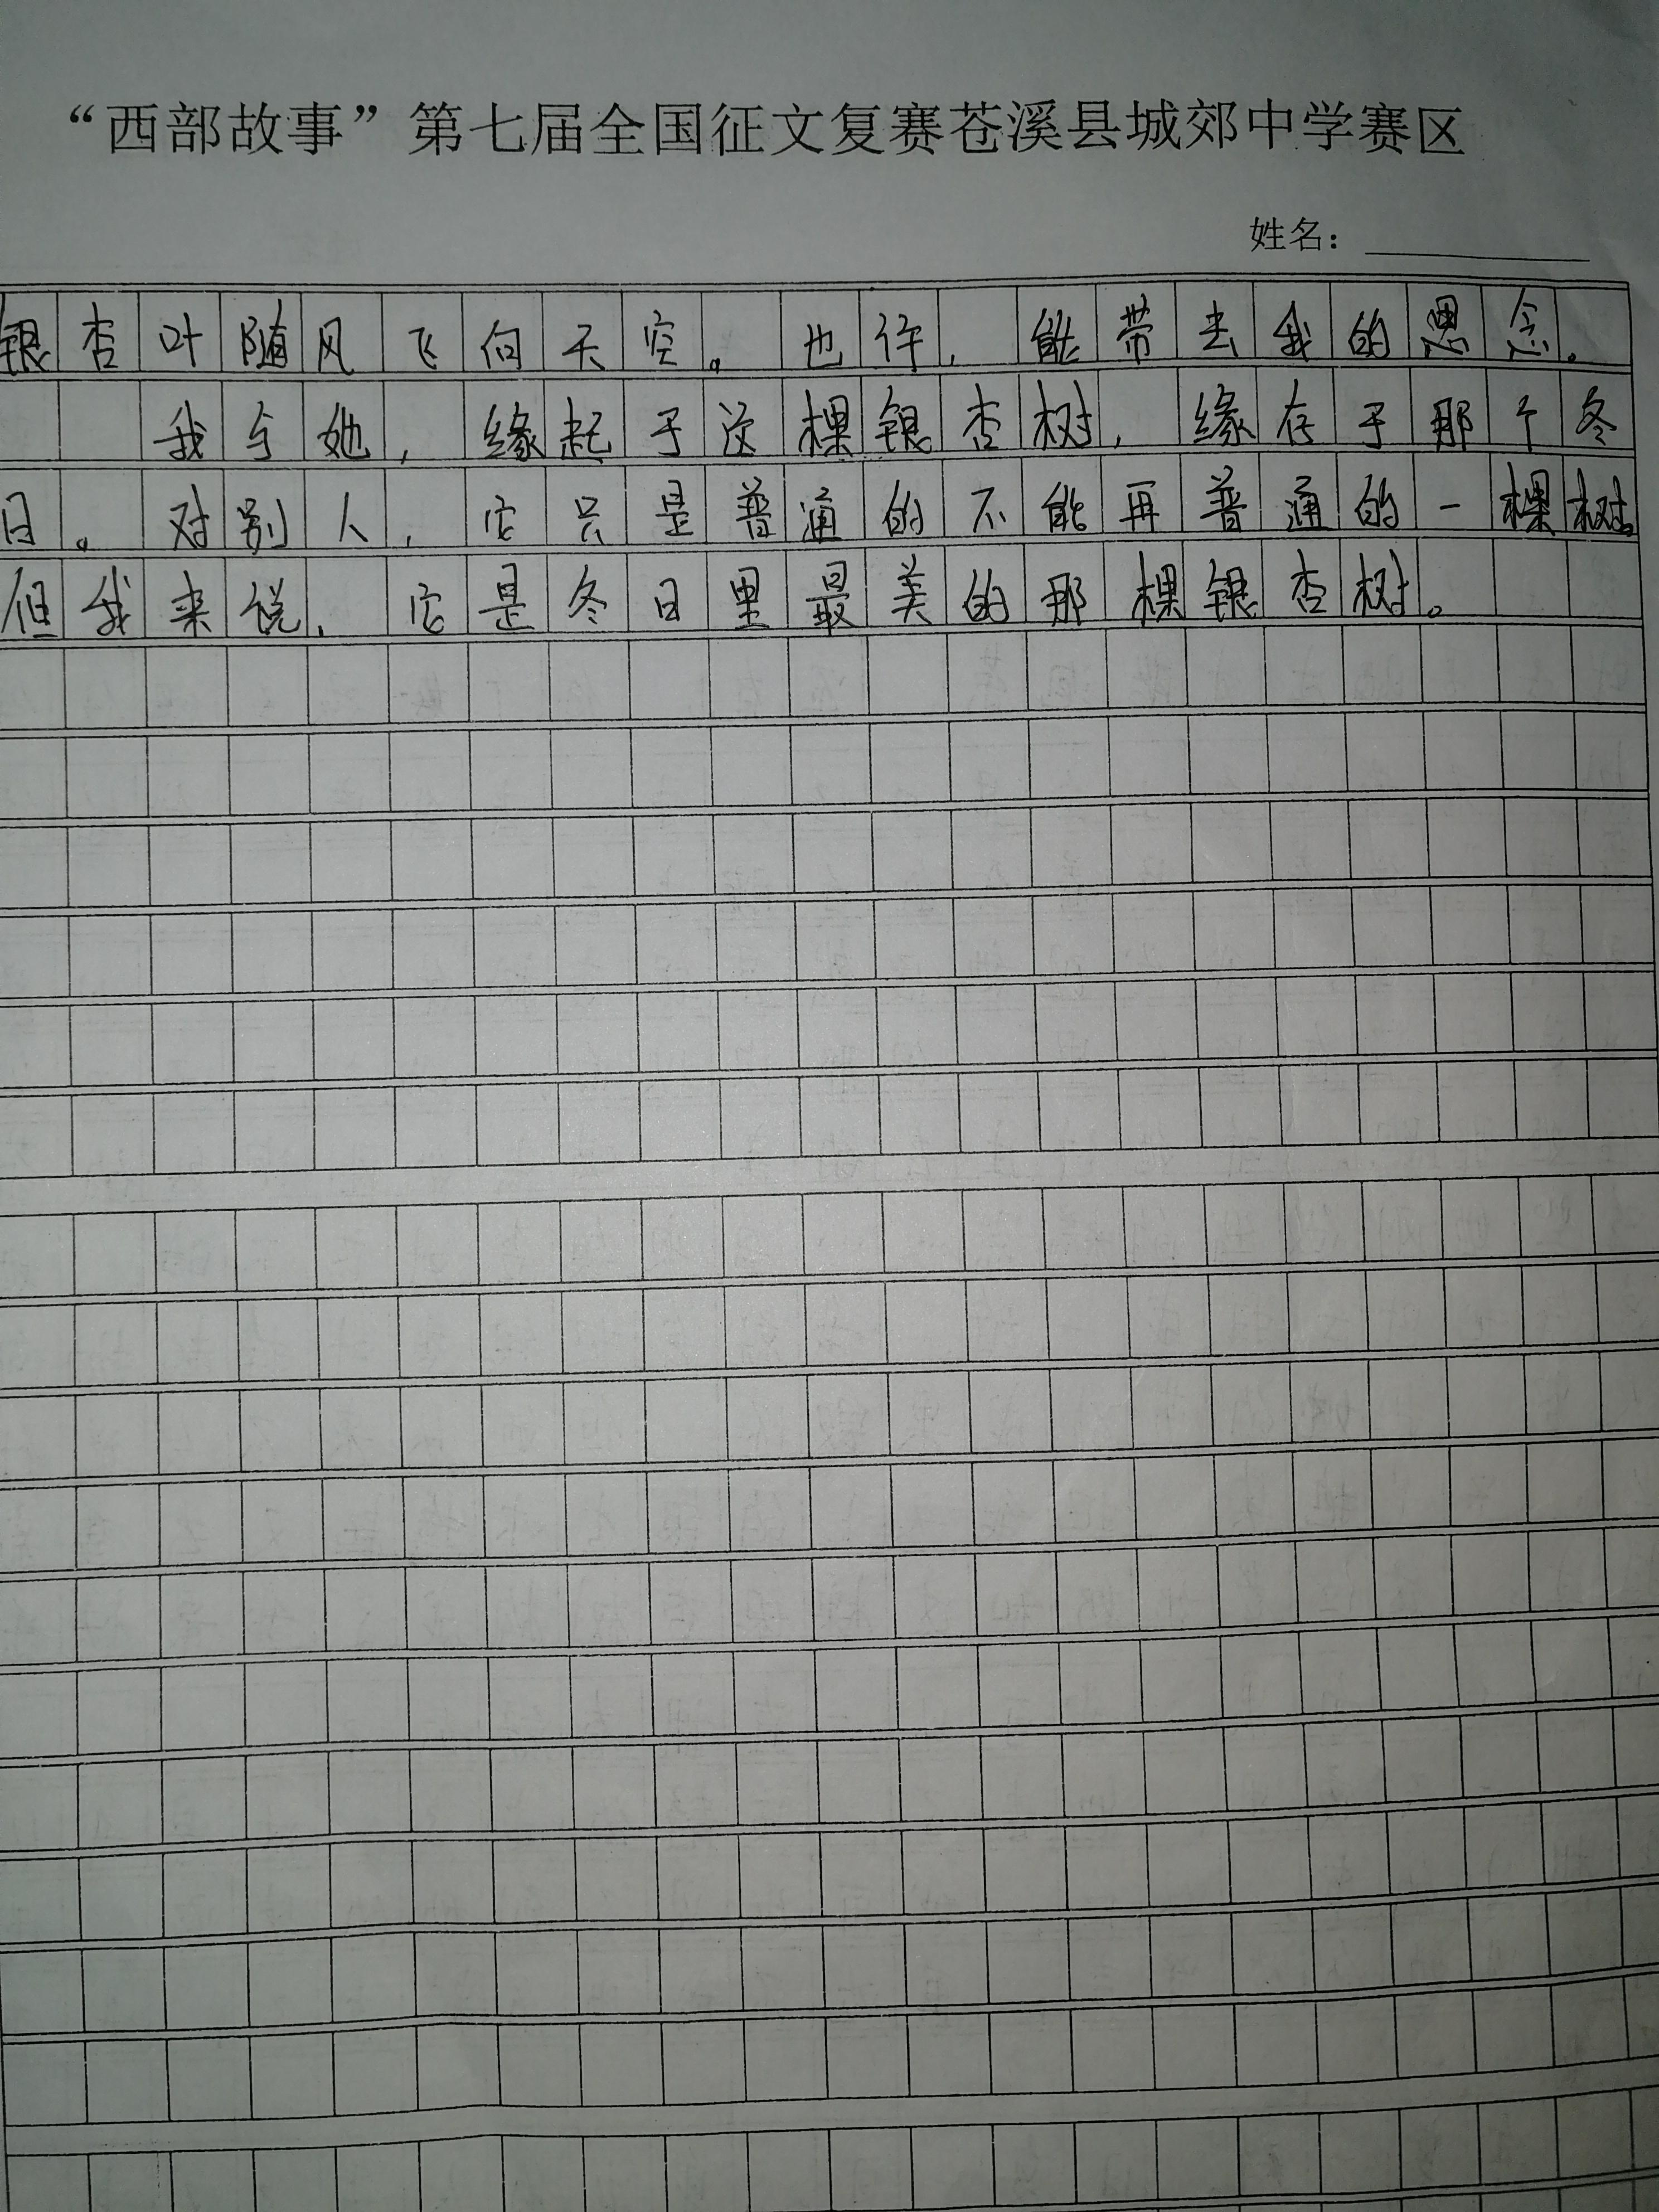 “西部故事”第七届全国征文复赛苍溪县城郊中学赛区
姓名：
银杏叶随风飞向天空。也许，能带去我的思念。
我与她，缘起于这棵银杏树，缘存于那个冬
日。对别人，它只是普通的不能再普通的一棵树。
但我来说，它是冬日里最美的那棵银杏树。